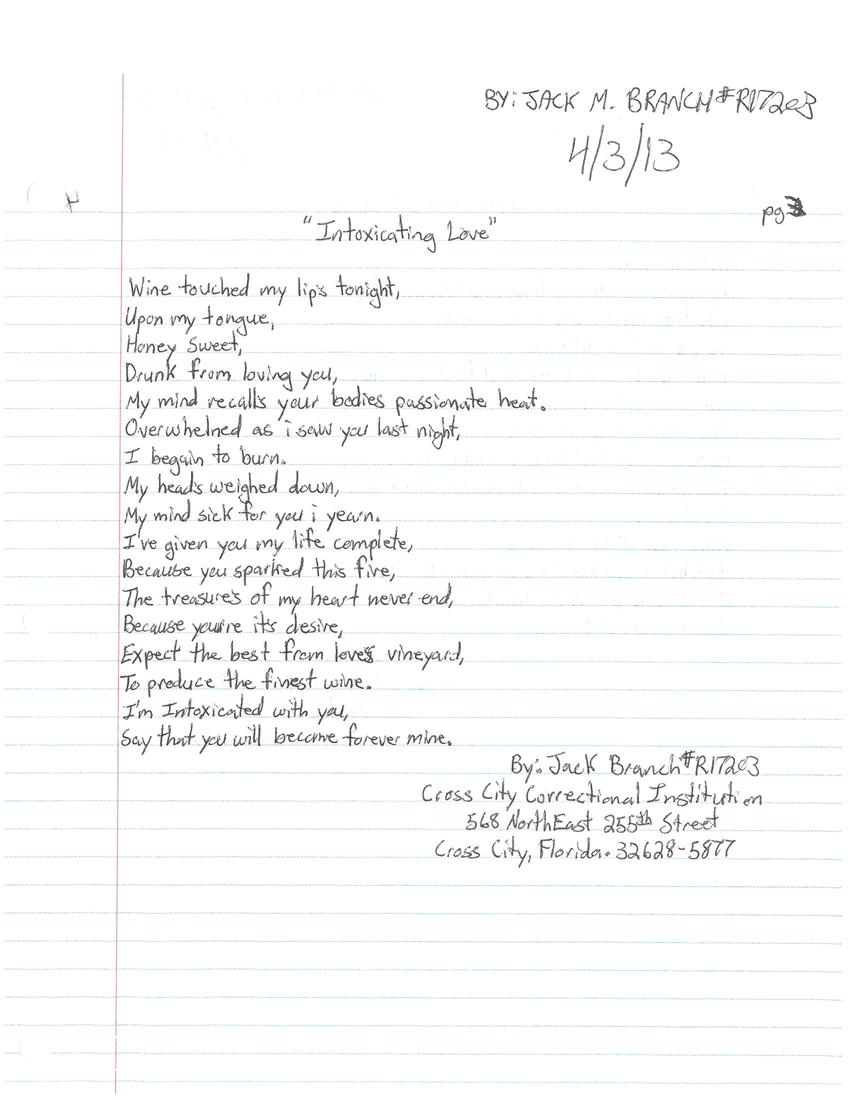 BY: JACK M. BRANCH #R17203
4/3/13
pg
"Intoxicating Love"
Wine touched my lip's tonight,
Upon my tongue,
Honey Sweet,
Drunk from loving you,
My mind recall's your bodies passionate heat.
Overwhelned as i saw you last night,
I begain to burn.
My head's weighed down,
My mind sick for you i yearn.
I've given you my life complete,
Because you sparked this fire,
The treasure's of my heart never end,
Because you're it's desire,
Expect the best from loves vineyard,
To produce the finest wine.
I'm Intoxicated with you,
Say that you will become forever mine.
By: Jack Branch #R17203
Cross City Correctional Institution
568 NorthEast 255th Street
Cross City, Florida. 32628-5877